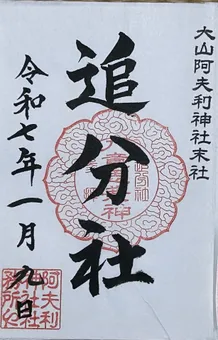 大山阿夫利神社末社
追分社
令和七年一月九日
阿夫利
神社社
務所印